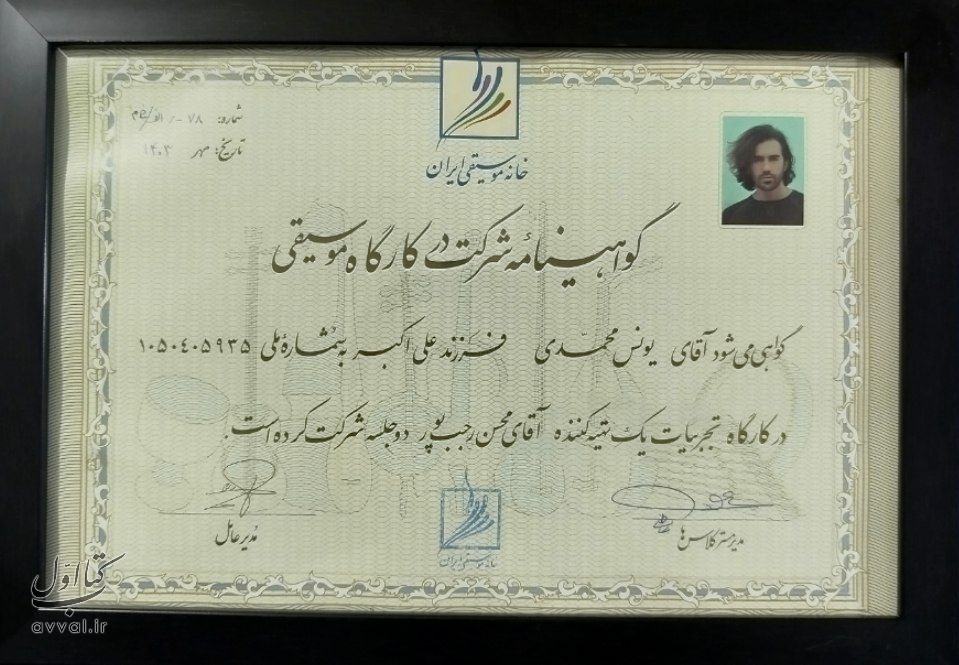 شماره: ۷۸-
تاریخ: مهر ۱۴۰۳
خانه موسیقی ایران
گواهینامهٔ شرکت در کارگاه موسیقی
گواهی می‌شود آقای یونس محمدی فرزند علی اکبر به شمارهٔ ملی ۱۰۵۰۴۰۵۹۳۵
در کارگاه تجربیات یک تهیه کننده آقای محسن رجب پور دو جلسه شرکت کرده است.
مدیر مستر کلاس‌ها
مدیر عامل
خانه موسیقی ایران
کتاب اول
avval.ir